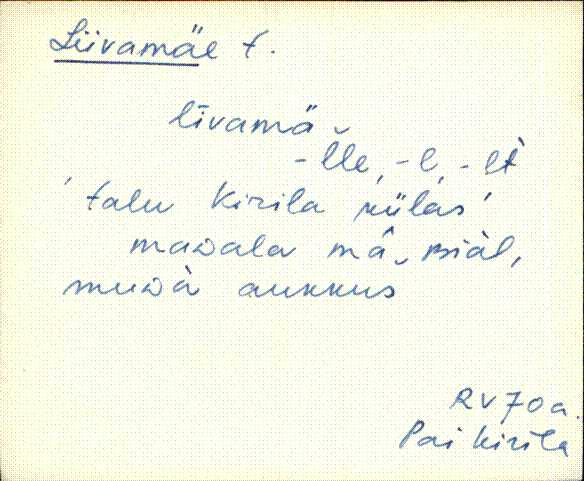 Liivamäe t.
līvamä
-lle, -l, -lt
'talu Kirila külas'
mawala mâ piàl,
muwà aukkus
RV70a.
Pai Kirila